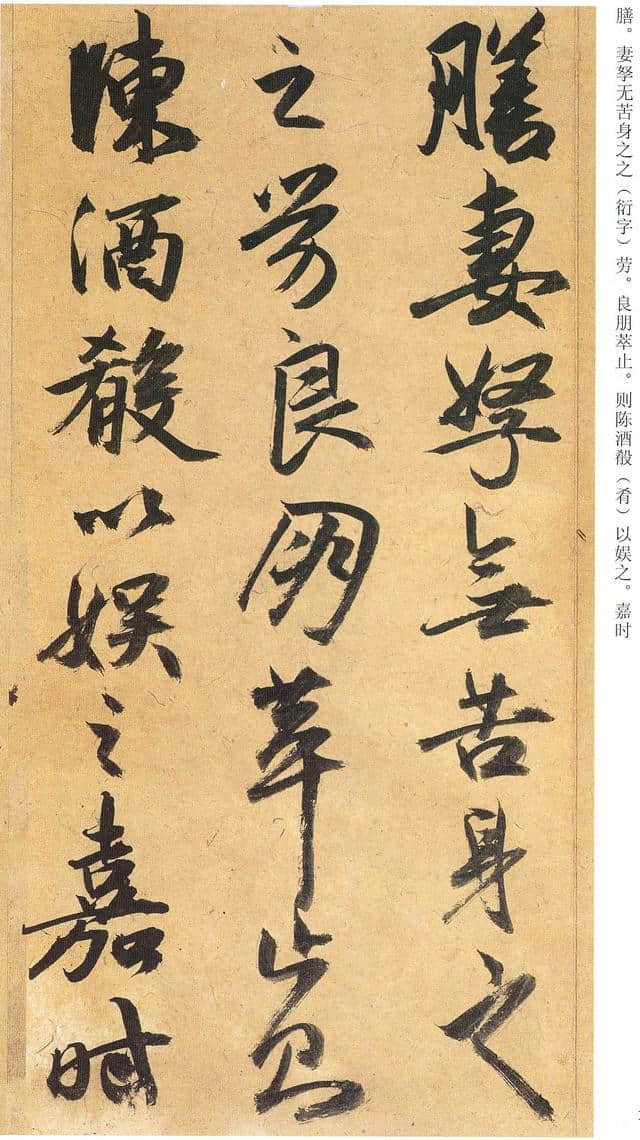 膳。妻孥无苦身之之（衍字）劳。良朋萃止。则陈酒殽（肴）以娱之。嘉时
膳妻孥無苦身之
之劳良朋萃止則
陳酒殽以娱之嘉時